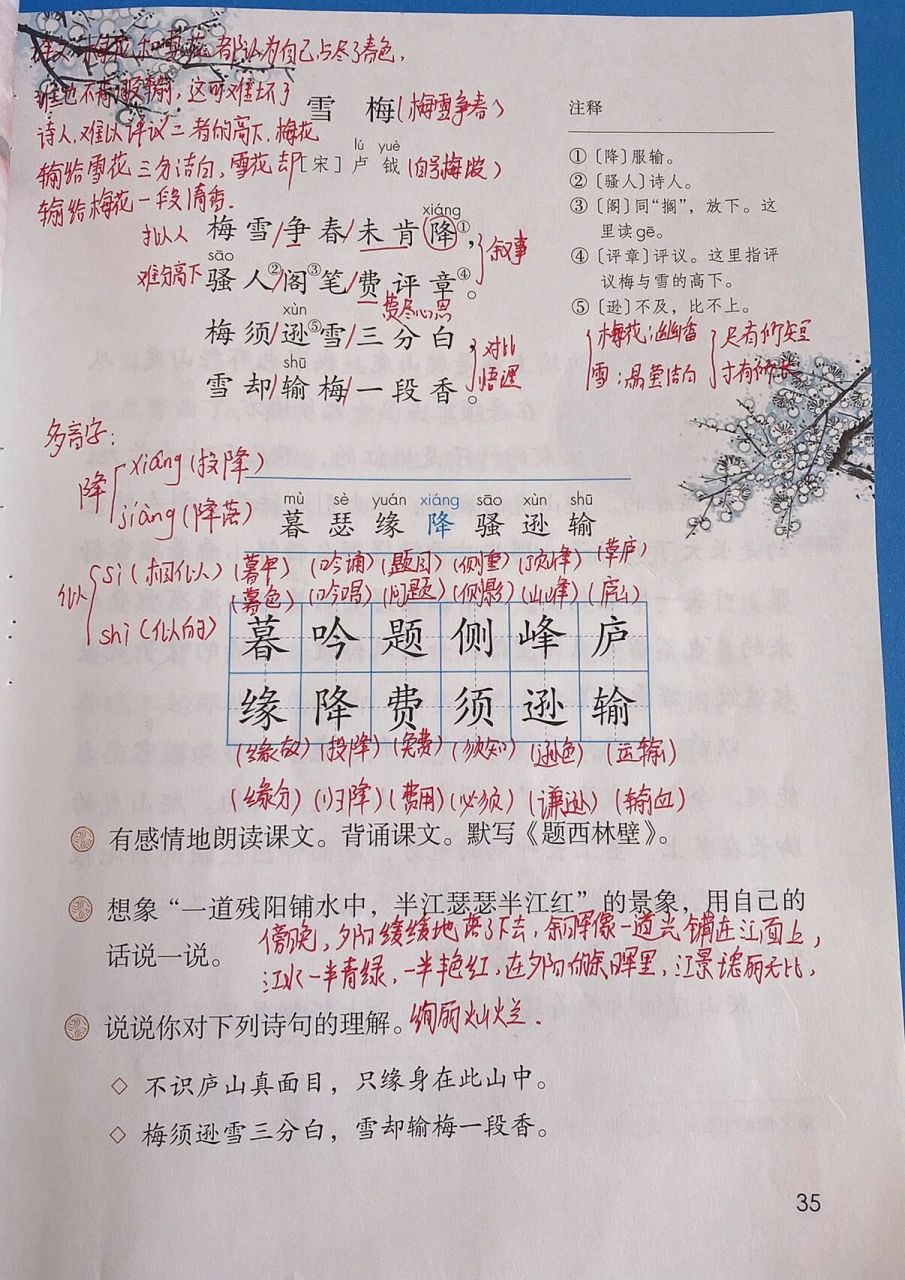 译文:梅花和雪花都认为自己占尽了春色,
谁也不肯服输,这可难坏了
诗人,难以评议二者的高下,梅花
输给雪花三分洁白,雪花却
输给梅花一段清香.
雪 梅(梅雪争春)
lú yuè
[宋]卢 钺(自号梅坡)
xiáng
拟人 梅雪/争春/未肯降①,
sāo
难分高下 骚人②/阁③笔/费评章④。 叙事
费尽心思
xùn
梅须/逊⑤雪/三分白,
shū
雪却/输梅/一段香。 对比 悟理
注释
①〔降〕服输。
②〔骚人〕诗人。
③〔阁〕同“搁”,放下。这
里读gē。
④〔评章〕评议。这里指评
议梅与雪的高下。
⑤〔逊〕不及,比不上。
梅花:幽香 尺有所短
雪:晶莹洁白 寸有所长
多音字:
降 xiáng(投降)
jiàng(降落)
似 sì(相似)
shì(似的)
mù sè yuán xiáng sāo xùn shū
暮 瑟 缘 降 骚 逊 输
(暮年)(吟诵)(题目)(侧重)(顶峰)(草庐)
(暮色)(吟唱)(问题)(侧影)(山峰)(庐山)
暮 吟 题 侧 峰 庐
缘 降 费 须 逊 输
(缘故)(投降)(免费)(须知)(逊色)(运输)
(缘分)(归降)(费用)(必须)(谦逊)(输血)
有感情地朗读课文。背诵课文。默写《题西林壁》。
想象“一道残阳铺水中,半江瑟瑟半江红”的景象,用自己的
话说一说。
傍晚,夕阳缓缓地落了下去,余晖像一道光铺在江面上,
江水一半青绿,一半艳红,在夕阳的余晖里,江景瑰丽无比,
绚丽灿烂.
说说你对下列诗句的理解。
◇ 不识庐山真面目,只缘身在此山中。
◇ 梅须逊雪三分白,雪却输梅一段香。
35